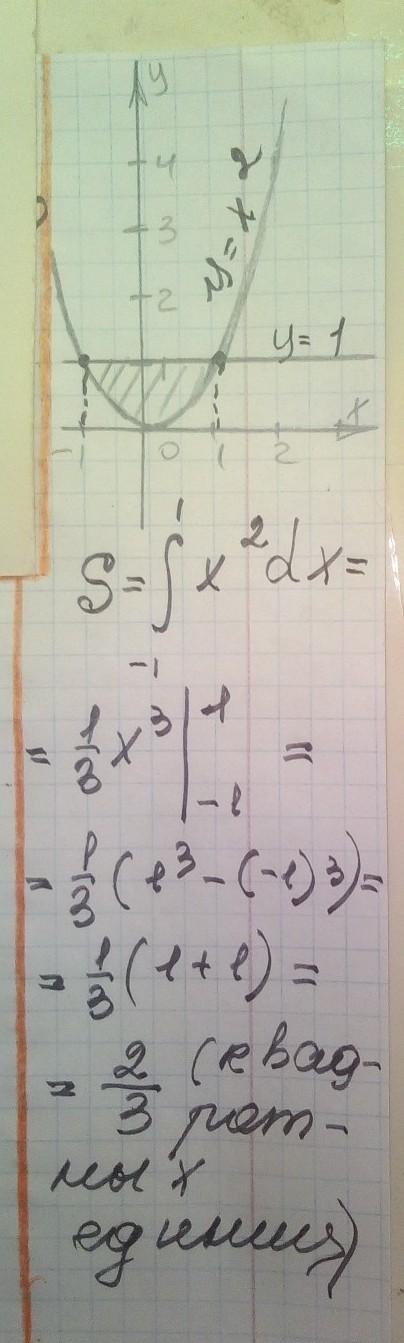 y
4
3
2
y = x²
y = 1
x
-1 0 1 2
S = ∫₋₁¹ x² dx =
= 1/3 x³ |₋₁¹ =
= 1/3 (1³ - (-1)³) =
= 1/3 (1 + 1) =
= 2/3 (квад-
рат-
ных
единиц)